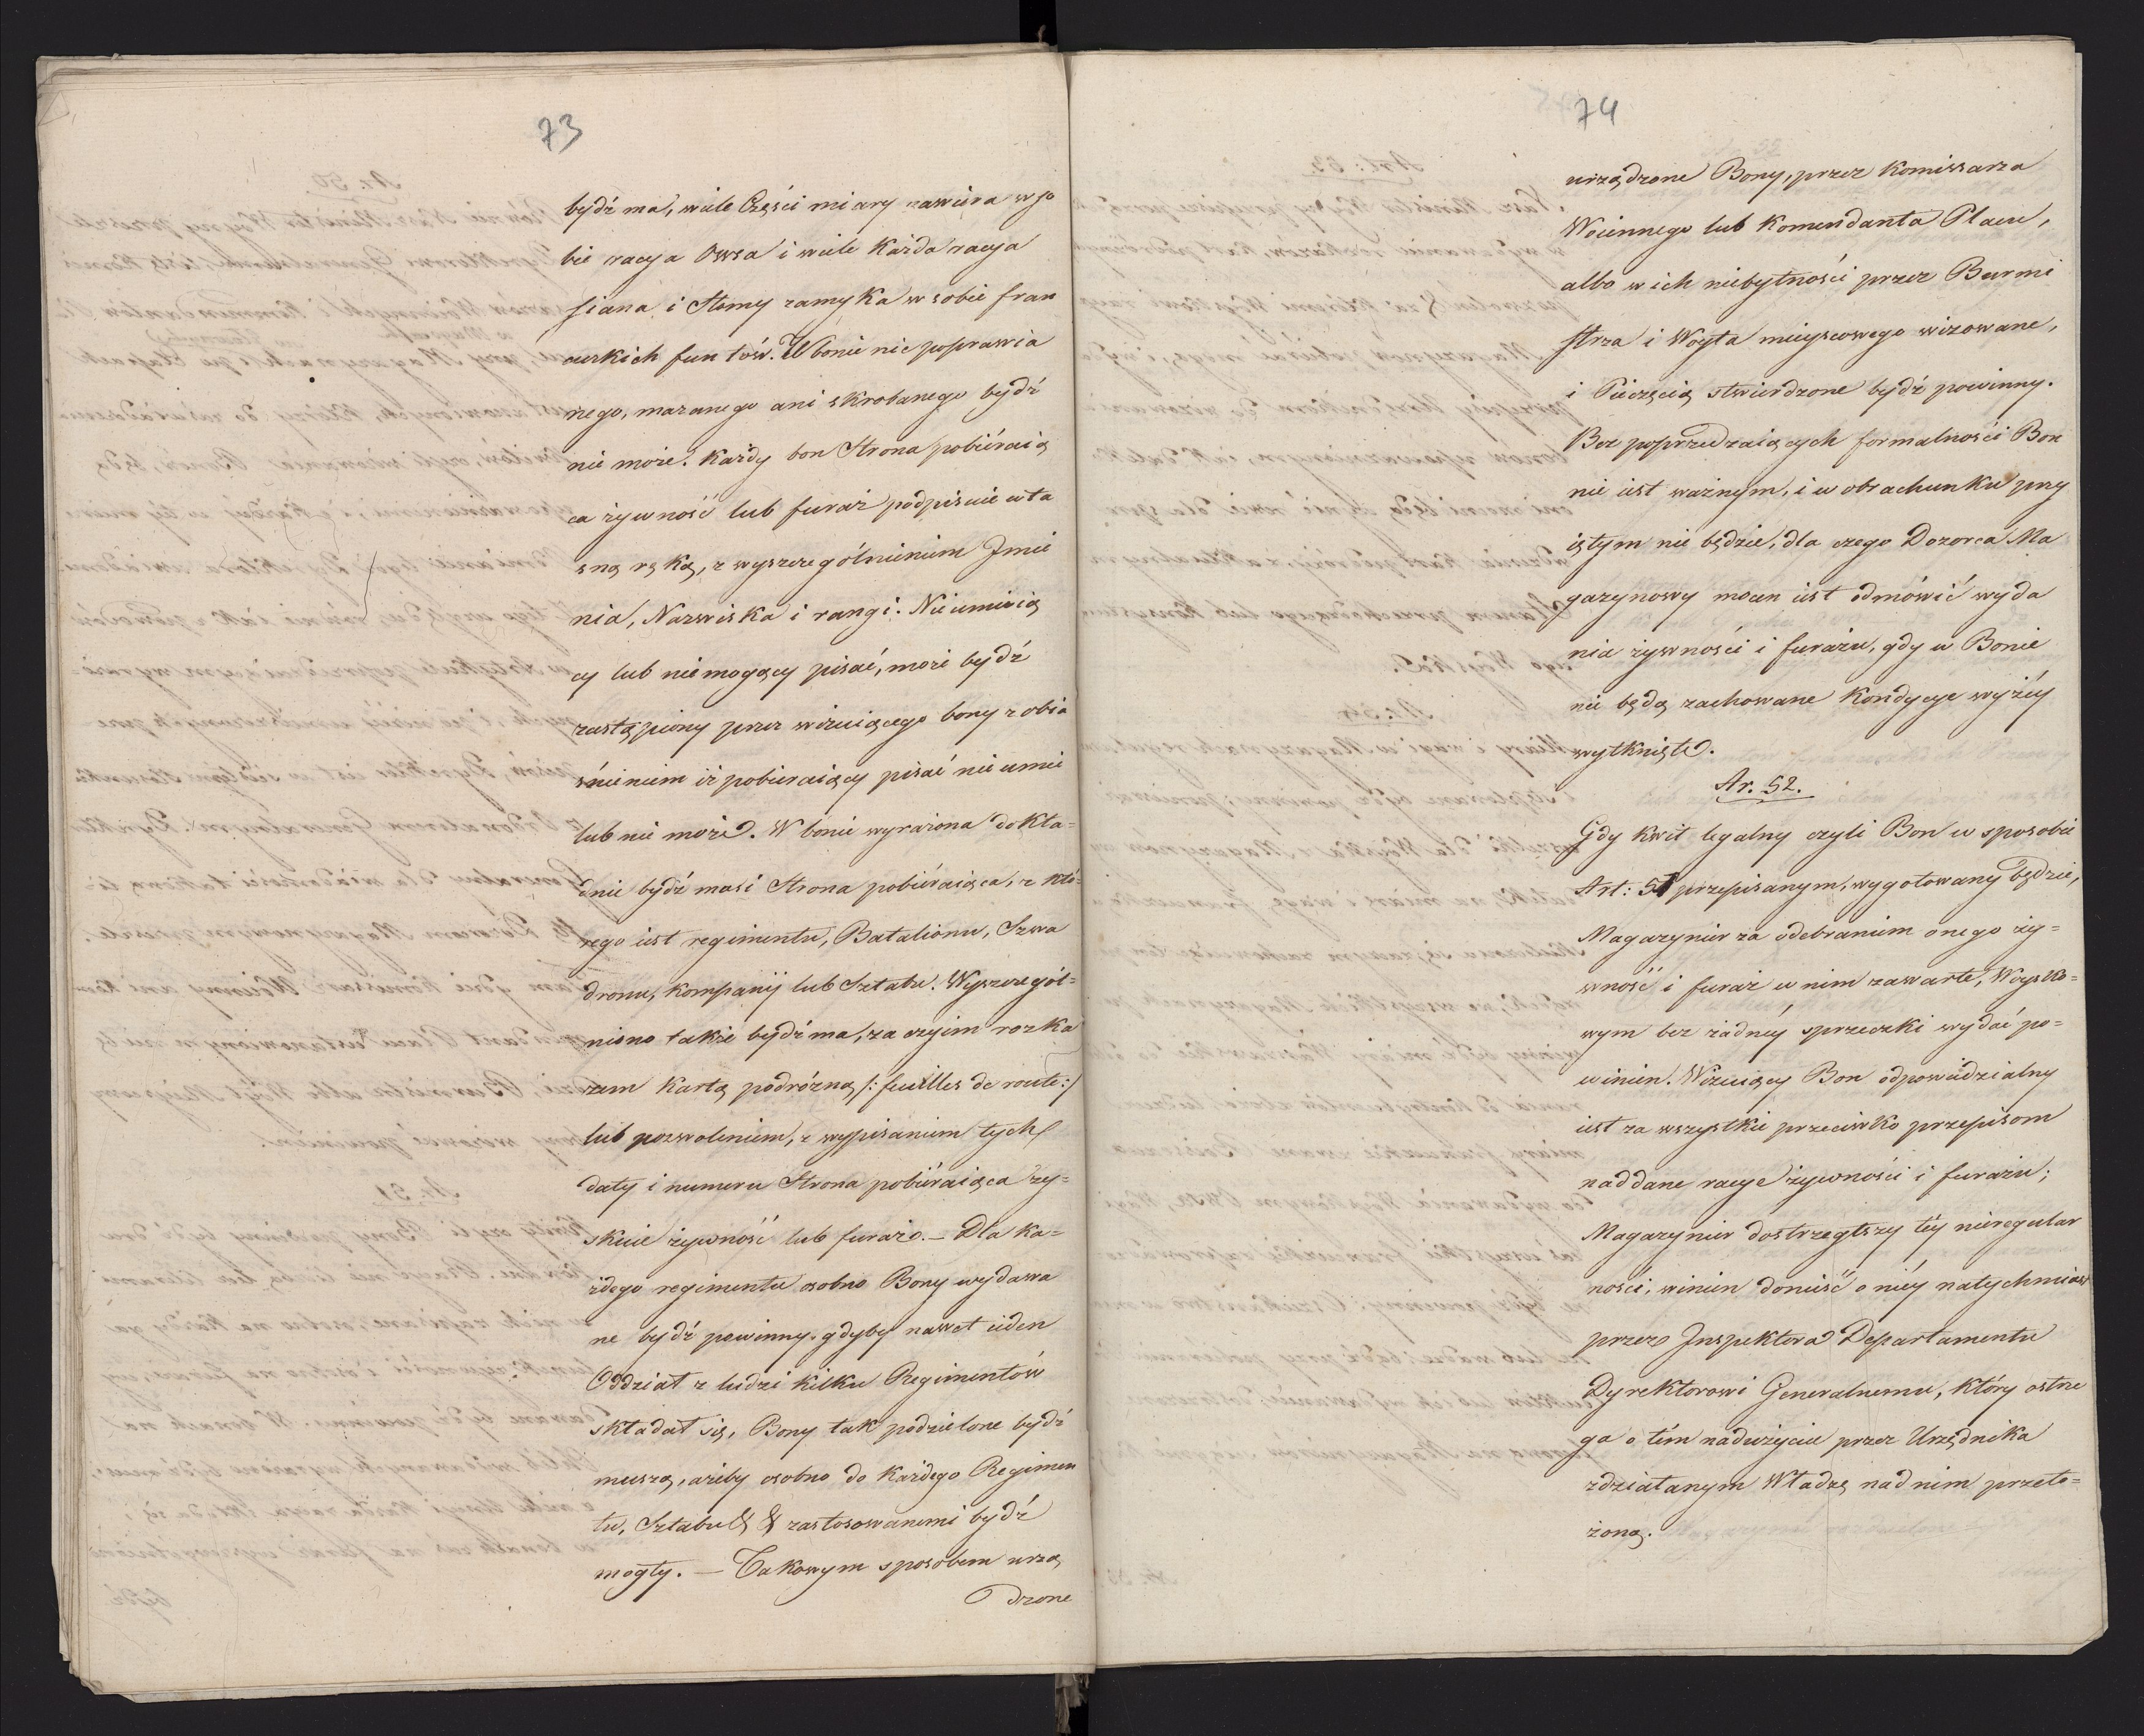 73
bydź ma, wiele Części miary zawiera w so
bie racya Owsa i wiele Każda racya
siana i Słomy zamyka w sobie fran
cuskich funtów. W bonie nic poprawia
nego, mazanego ani skrobanego bydź
nie może. Każdy bon Strona pobiéraią
ca żywność lub furaż podpisuie wła
sną ręką, z wyszczególnieniem Jmie
nia, Nazwiska i rangi. Nieumieią
cy lub niemogący pisać, może bydź
zastąpiony przez wizuiącego bony z obia
śnieniem iż pobieraiący pisać nie umie
lub nie może. W bonie wyrażona dokła=
dnie bydź musi Strona pobiéraiąca, z któ=
rego iest regimentu, Batalionu, Szwa
dronu, Kompanij lub Sztabu. Wyszczegól=
niono także bydź ma, za czyim rozka
zem Kartą podróżną /: feuilles de route:/
lub pozwoleniem, z wypisaniem tych
daty i numeru Strona pobiéraiąca zy=
skuie żywność lub furaż. – Dla ka=
żdego regimentu osobno Bony wydawa
ne bydź powinny. gdyby nawet ieden
Oddział z ludzi kilku Regimentów
składał się, Bony tak podzielone bydź
muszą, ażeby osobno do Każdego Regimen
tu, Sztabu & & zastosowanemi bydź
mogły. — Takowym sposobem urzą
dzone
74
urządzone Bony, przez Komissarza
Woiennego lub Komendanta Placu,
albo w ich niebytności przez Burmi
strza i Woyta mieyscowego wizowane,
i Pieczęcią stwierdzone bydź powinny.
Bez poprzedzaiących formalności Bon
nie iest ważnym, i w obrachunku przy
iętym nie będzie, dla czego Dozorca Ma
gazynowy mocen iest odmówić wyda
nia żywności i furażu, gdy w Bonie
nie będą zachowane Kondycye wyżéy
wytknięte.
Ar. 52.
Gdy Kwit legalny czyli Bon w sposobie
Art: 51 przepisanym, wygotowany będzie,
Magazynier za odebraniem onego ży=
wność i furaż w nim zawarte, Woysko=
wym bez żadnéy sprzeczki wydać po=
winien. Wizuiący Bon odpowiedzialny
iest za wszystkie przeciwko przepisom
naddane racye żywności i furażu;
Magazynier dostrzegłszy téy nieregular
ności, winien donieść o niéy natychmiast
przez Inspektora Departamentu
Dyrektorowi Generalnemu, który ostrze
ga o tém nadużyciu przez Urzędnika
zdziałanym Władzę nad nim przeło=
żoną.